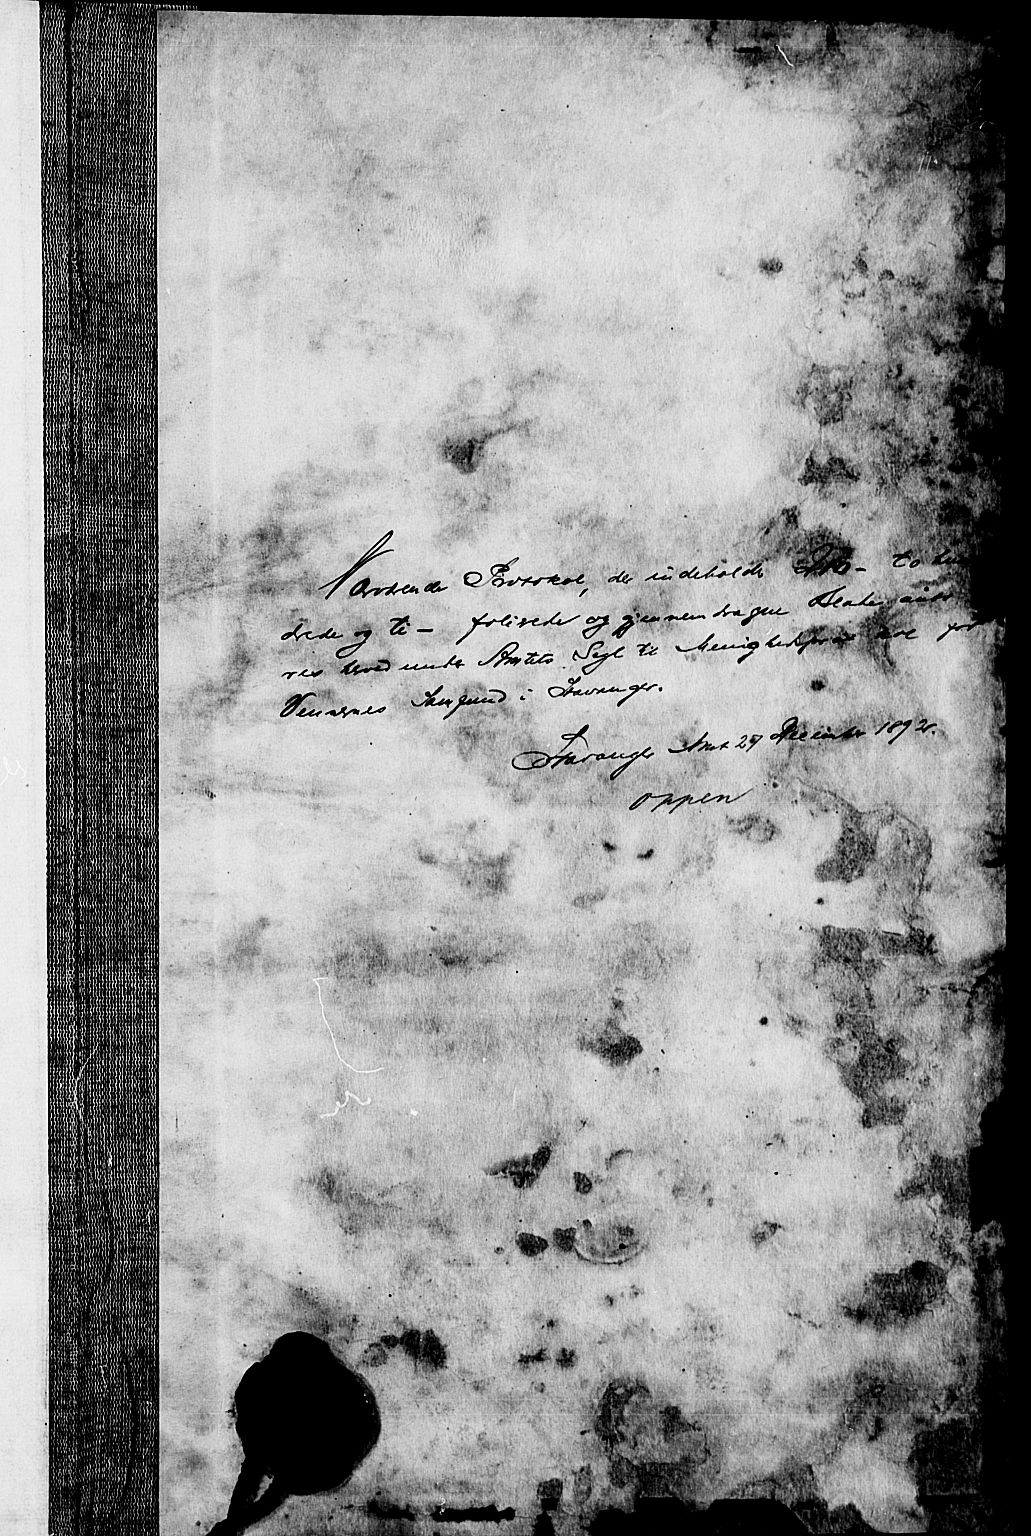 Nærværende Protokol, der indeholder 210 - to hun
drede og ti - folierede og gjennemdragne Blade, autori
res herved under Amtets Segl til Menighedsprotokol for
Vennernes Samfund i Stavanger.
Stavanger Amt 29 December 1892.
Oppen